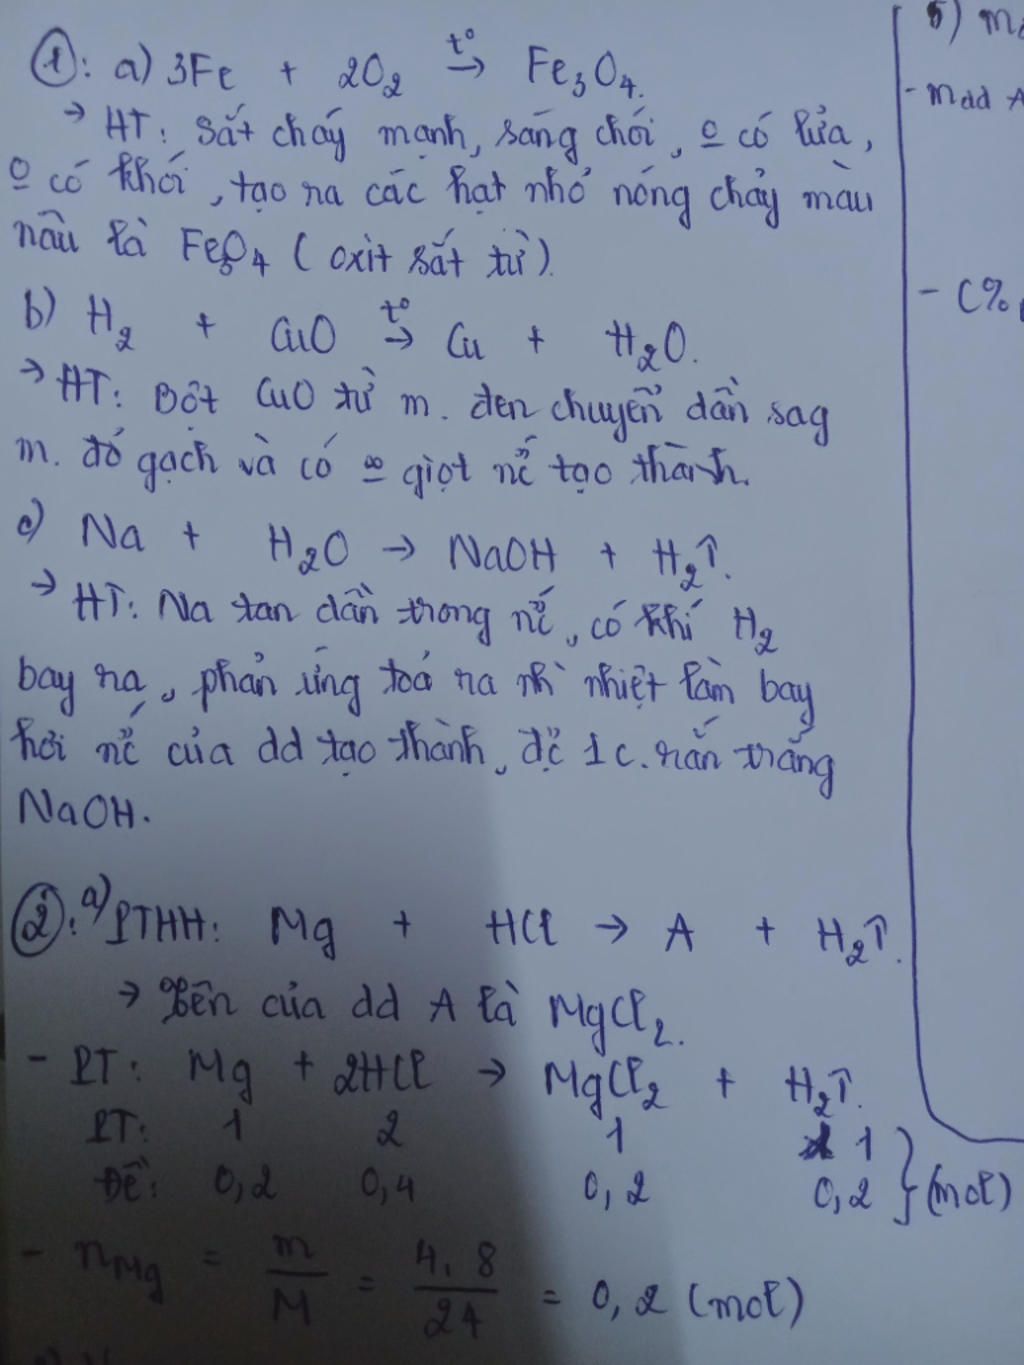 ①: a) 3Fe + 2O₂ t°→ Fe₃O₄.
→ HT: Sắt cháy mạnh, sáng chói, o có lửa,
o có khói, tạo ra các hạt nhỏ nóng chảy màu
nâu là Fe₃O₄ (oxit sắt từ).
b) H₂ + CuO t°→ Cu + H₂O.
→ HT: Bột CuO từ m. đen chuyển dần sag
m. đỏ gạch và có giọt nc tạo thành.
c) Na + H₂O → NaOH + H₂↑.
→ HT: Na tan dần trong nc, có khí H₂
bay ra, phản ứng toả ra nh` nhiệt làm bay
hơi nc của dd tạo thành, đc 1 c. rắn trắng
NaOH.
②: a) PTHH: Mg + HCl → A + H₂↑.
→ Tên của dd A là MgCl₂.
- PT: Mg + 2HCl → MgCl₂ + H₂↑.
PT: 1 2 1 1
Đề: 0,2 0,4 0,2 0,2 } (mol)
- nMg = m/M = 4,8/24 = 0,2 (mol)
b) m
- mdd A
- C%